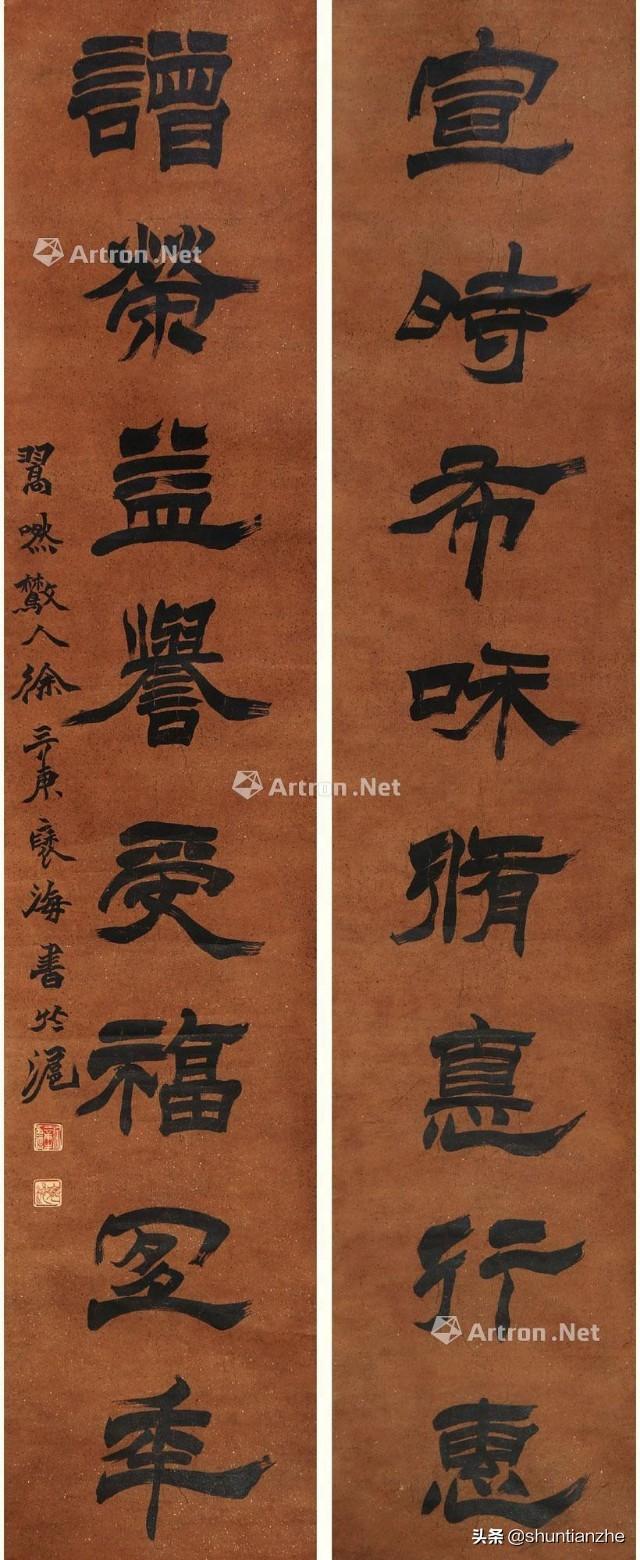 宣時布和脩悳行惠
譄榮益譽受福年
翯嘫人徐三庚褎海書於滬
Artron.Net
Artron.Net
Artron.Net
头条 @shuntianzhe